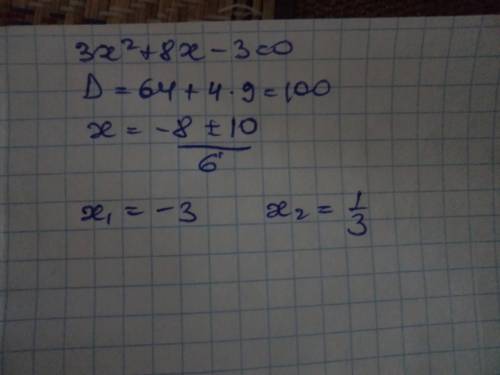 3x²+8x-3=0
D = 64+4·9=100
x = -8 ± 10
6
x₁ = -3 x₂ = 1/3